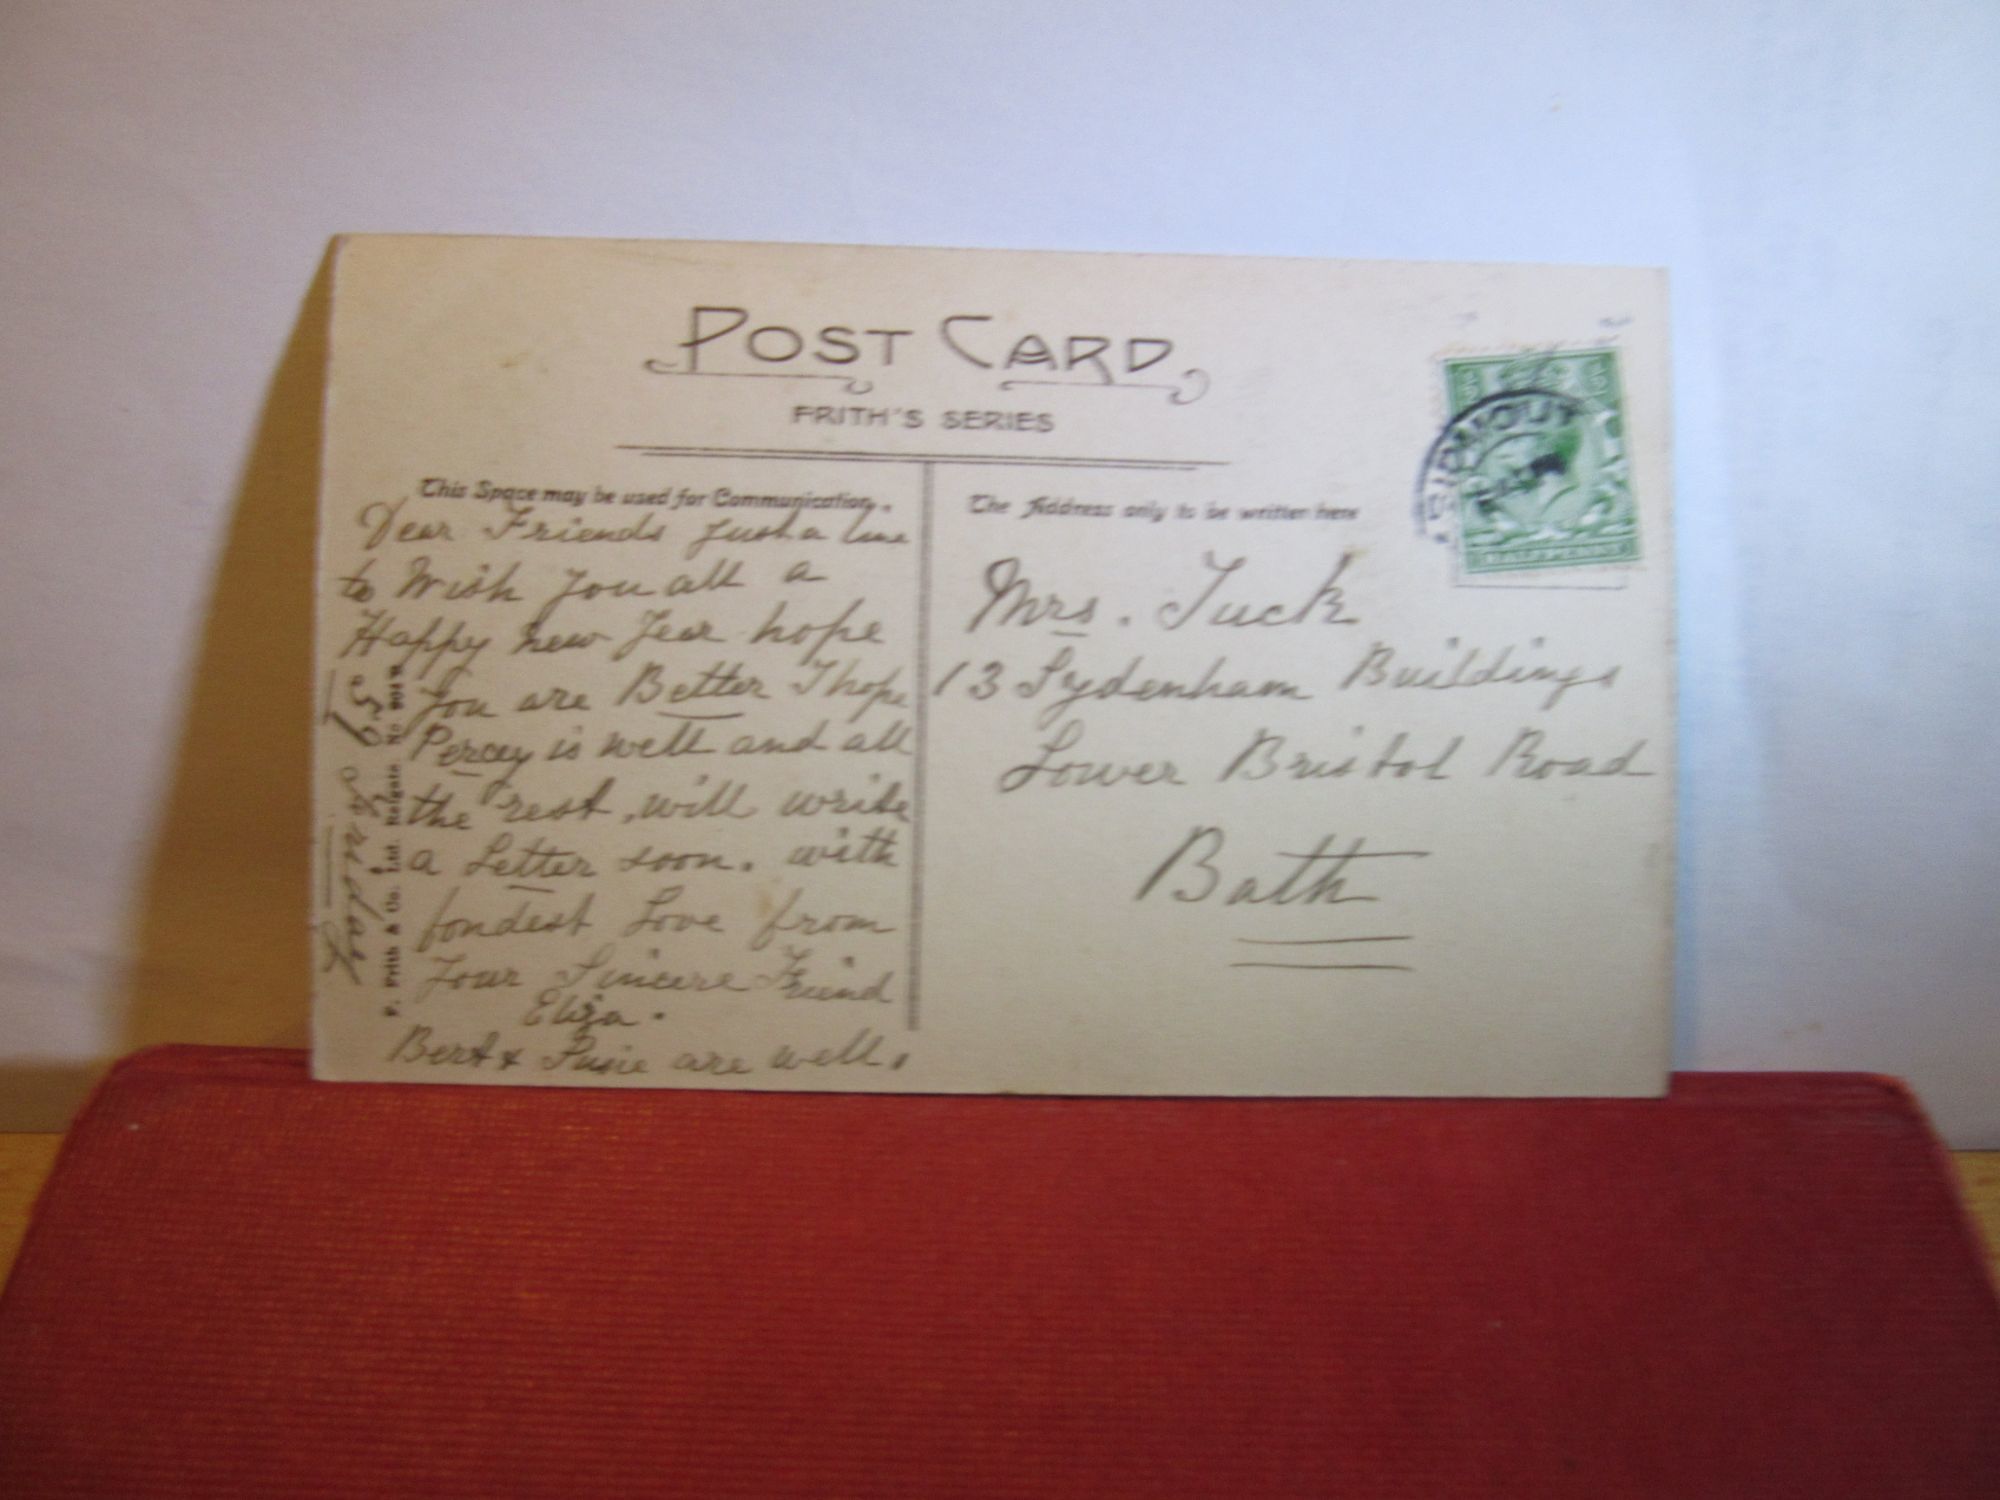 POST CARD
FRITH'S SERIES
This Space may be used for Communication.
The Address only to be written here
Dear Friends Just a line
to Wish You all a
Happy new Year hope
You are Better I hope
Percey is well and all
the rest, will write
a Letter soon. with
fondest Love from
Your Sincere Friend
Eliza.
Bert & Susie are well.
Friday
F. Frith & Co. Ltd. Reigate No
Mrs. Tuck
13 Sydenham Buildings
Lower Bristol Road
Bath
HALFPENNY